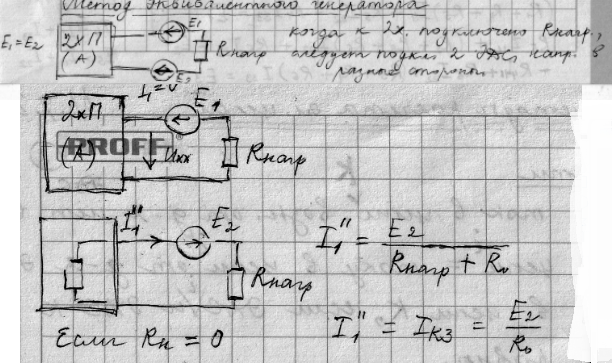 Метод эквивалентного генератора
E₁=E₂
2хП
(А)
E₁
Rнагр
когда к 2х. подключено Rнагр.,
следует подкл. 2 ЭДС, напр. в
разные стороны
I₁=0
E₁
2хП
(А)
PROFF
Uхх
Rнагр
I₁''
E₂
Rнагр
I₁'' = E₂ / Rнагр + R₀
Если Rн = 0
I₁'' = Iкз = E₂ / R₀